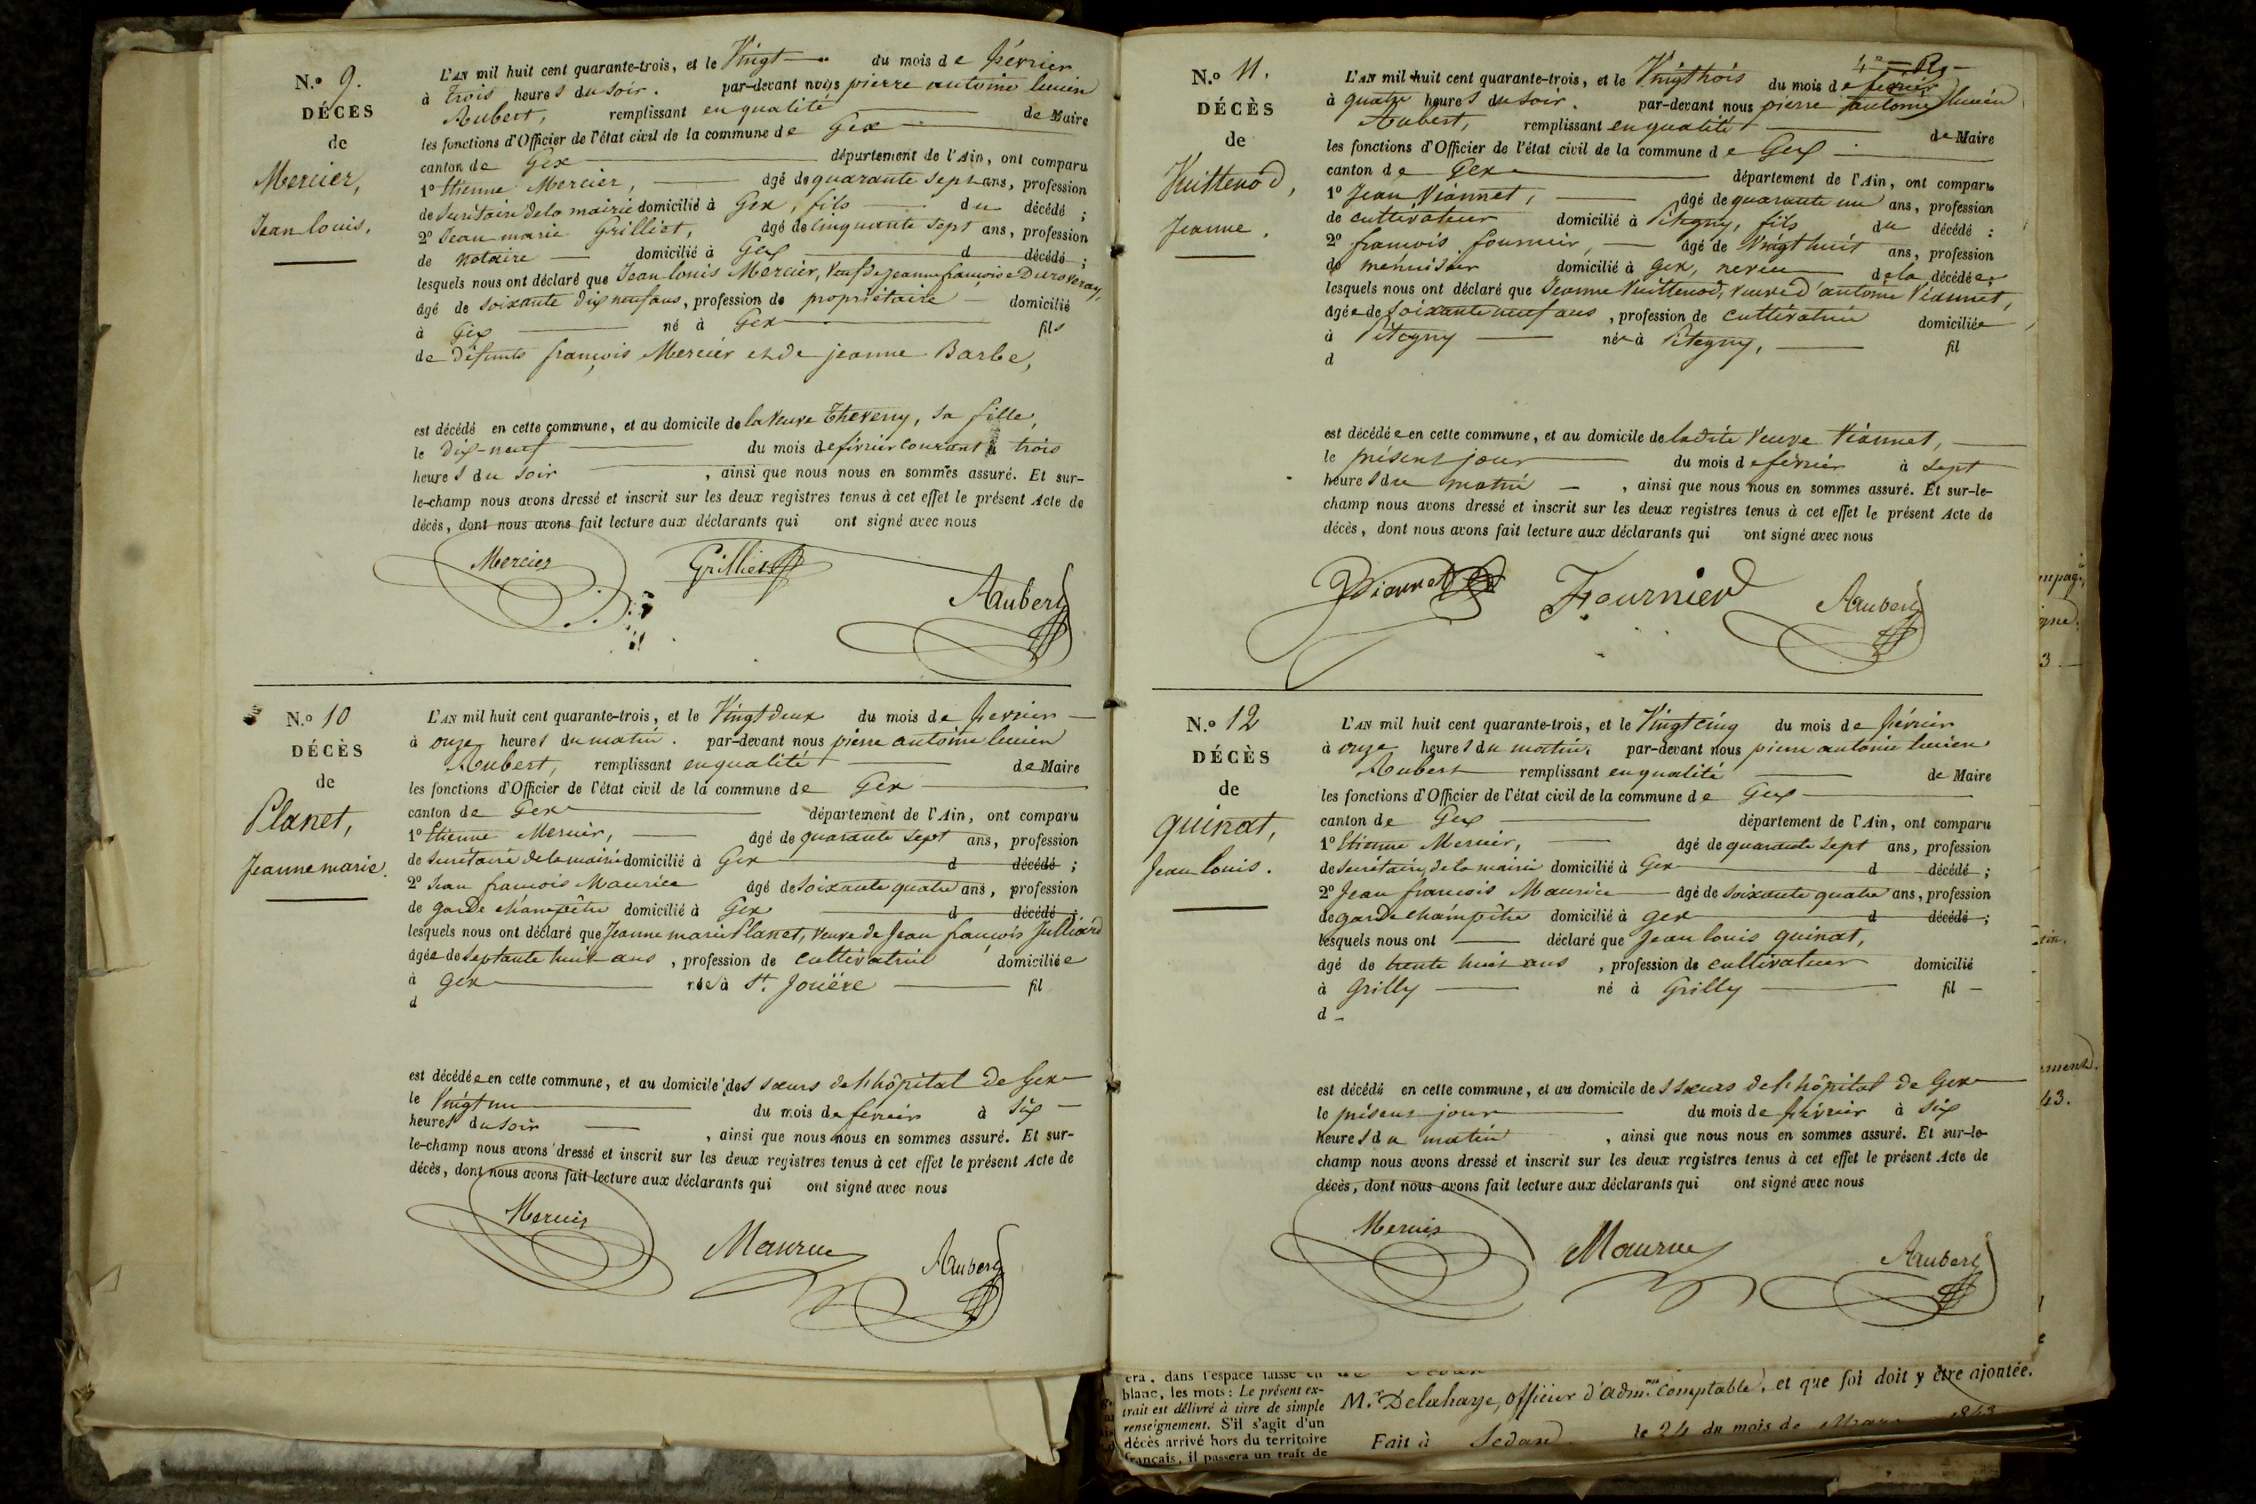 N.o 9.
DÉCÈS
de
Mercier,
Jean louis.
L'AN mil huit cent quarante-trois, et le Vingt du mois de février
à trois heures du soir. par-devant nous pierre antoine lucien
Aubert, remplissant en qualité de Maire
les fonctions d'Officier de l'état civil de la commune de Gex
canton de Gex département de l'Ain, ont comparu
1o Etienne Mercier, âgé de quarante sept ans, profession
de Secrétaire de la mairie domicilié à Gex, fils du décédé ;
2o Jean marie Grilliet, âgé de Cinquante sept ans, profession
de notaire domicilié à Gex d décédé ;
lesquels nous ont déclaré que Jean louis Mercier, Veuf de jeanne françoise Duroveray,
âgé de soixante dix neuf ans, profession de propriétaire domicilié
à Gex né à Gex fils
de défunts françois Mercier et de jeanne Barbe,
est décédé en cette commune, et au domicile de la Veuve Theveny, sa fille,
le dix-neuf du mois de février courant à trois
heures du soir , ainsi que nous nous en sommes assuré. Et sur-
le-champ nous avons dressé et inscrit sur les deux registres tenus à cet effet le présent Acte de
décès, dont nous avons fait lecture aux déclarants qui ont signé avec nous
Mercier Grilliet
Aubert
N.o 10
DÉCÈS
de
Planet,
Jeanne marie.
L'AN mil huit cent quarante-trois, et le Vingt deux du mois de fevrier
à onze heures du matin. par-devant nous pierre antoine lucien
Aubert, remplissant en qualité de Maire
les fonctions d'Officier de l'état civil de la commune de Gex
canton de Gex département de l'Ain, ont comparu
1o Etienne Mercier, âgé de quarante sept ans, profession
de secrétaire de la mairie domicilié à Gex d décédé ;
2o Jean françois Maurice âgé de soixante quatre ans, profession
de garde champêtre domicilié à Gex d décédé ;
lesquels nous ont déclaré que Jeanne marie Planet, veuve de Jean françois Julliard
âgée de septante huit ans , profession de cultivatrice domiciliée
à Gex née à St. Jouëre fil
d
est décédée en cette commune, et au domicile des sœurs de l'hôpital de Gex
le Vingt un du mois de février à six
heures du soir , ainsi que nous nous en sommes assuré. Et sur-
le-champ nous avons dressé et inscrit sur les deux registres tenus à cet effet le présent Acte de
décès, dont nous avons fait lecture aux déclarants qui ont signé avec nous
Mercier
Maurice Aubert
N.o 11.
DÉCÈS
de
Vuittenod,
Jeanne.
L'AN mil huit cent quarante-trois, et le Vingt trois du mois de février
à quatre heures du soir. par-devant nous pierre antoine lucien
Aubert, remplissant en qualité de Maire
les fonctions d'Officier de l'état civil de la commune de Gex
canton de Gex département de l'Ain, ont comparu
1o Jean Viannet, âgé de quarante un ans, profession
de cultivateur domicilié à Pitegny, fils du décédé :
2o françois fournier, âgé de Vingt huit ans, profession
de menuisier domicilié à Gex, neveu de la décédée ;
lesquels nous ont déclaré que Jeanne Vuittenod, veuve d'antoine Viannet,
âgée de soixante neuf ans , profession de cultivatrice domiciliée
à Pitegny née à Pitegny, fil
d
est décédée en cette commune, et au domicile de ladite Veuve Viannet,
le présent jour du mois de février à sept
heures du matin , ainsi que nous nous en sommes assuré. Et sur-le-
champ nous avons dressé et inscrit sur les deux registres tenus à cet effet le présent Acte de
décès, dont nous avons fait lecture aux déclarants qui ont signé avec nous
Viannet Fournier Aubert
N.o 12
DÉCÈS
de
quinat,
Jean louis.
L'AN mil huit cent quarante-trois, et le Vingt cinq du mois de février
à onze heures du matin. par-devant nous pierre antoine lucien
Aubert remplissant en qualité de Maire
les fonctions d'Officier de l'état civil de la commune de Gex
canton de Gex département de l'Ain, ont comparu
1o Etienne Mercier, âgé de quarante sept ans, profession
de secrétaire de la mairie domicilié à Gex d décédé ;
2o Jean françois Maurice âgé de soixante quatre ans, profession
de garde champêtre domicilié à Gex d décédé ;
lesquels nous ont déclaré que Jean louis quinat,
âgé de trente huit ans , profession de cultivateur domicilié
à Grilly né à Grilly fil
d
est décédé en cette commune, et au domicile des sœurs de l'hôpital de Gex
le présent jour du mois de février à six
heures du matin , ainsi que nous nous en sommes assuré. Et sur-le-
champ nous avons dressé et inscrit sur les deux registres tenus à cet effet le présent Acte de
décès, dont nous avons fait lecture aux déclarants qui ont signé avec nous
Mercier Maurice Aubert
blanc, les mots : Le présent ex-
trait est délivré à titre de simple
renseignement. S'il s'agit d'un
décès arrivé hors du territoire
français, il passera un trait de
M.r Delahaye, officier d'adm.on comptable, et que foi doit y être ajoutée.
Fait à Sedan le 24 du mois de
43.